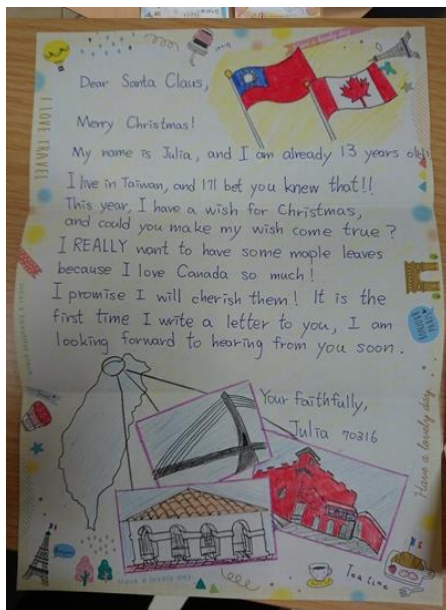 Have a lovely day
Dear Santa Claus,
I LOVE TRAVEL
Merry Christmas!
My name is Julia, and I am already 13 years old!
I live in Taiwan, and I'll bet you knew that!!
This year, I have a wish for Christmas,
and could you make my wish come true?
I REALLY want to have some maple leaves
because I love Canada so much!
I promise I will cherish them! It is the
first time I write a letter to you, I am
looking forward to hearing from you soon.
Your faithfully,
Julia 70316
Have a lovely day
Have a lovely day
Tea time